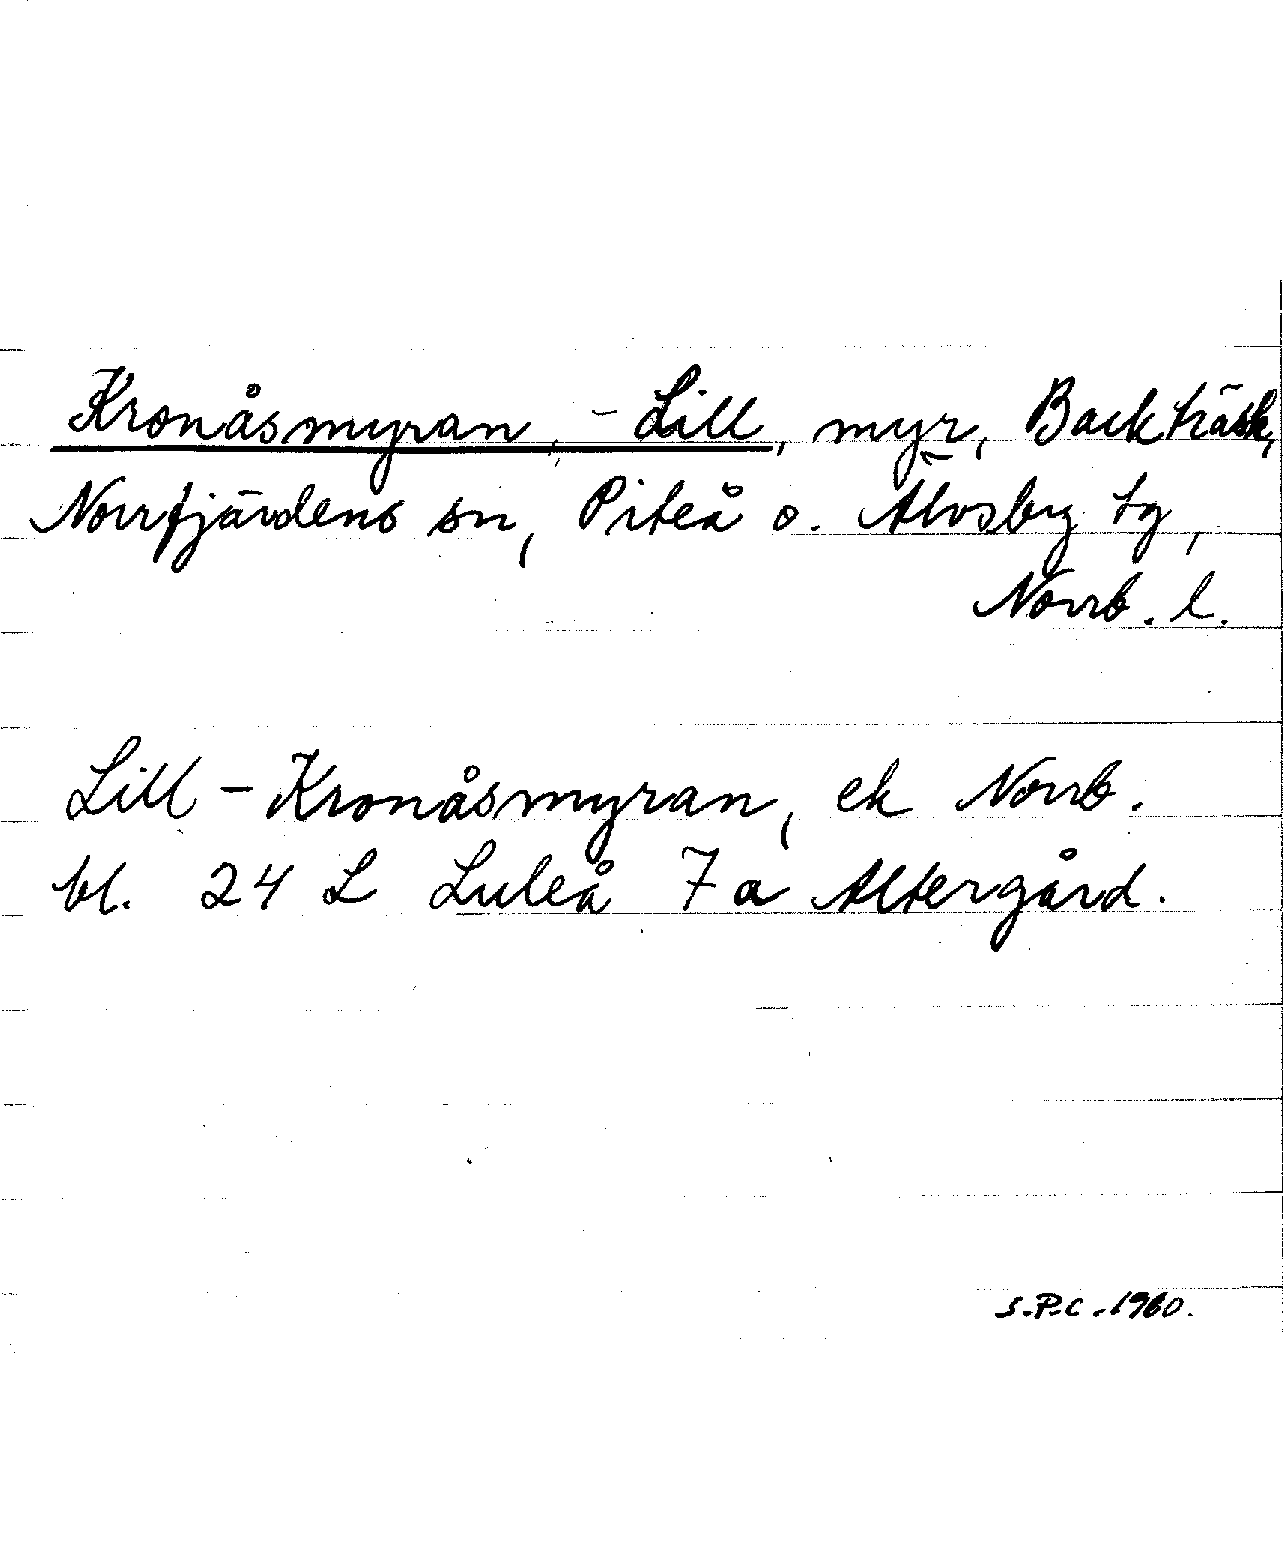 Kronåsmyran, - Lill, myr, Backträsk,
Norrfjärdens sn, Piteå o. Älvsby tg,
Norrb. l.
Lill - Kronåsmyran, ek Norrb.
bl. 24 L Luleå 7a Altergård.
S.P.C. 1960.